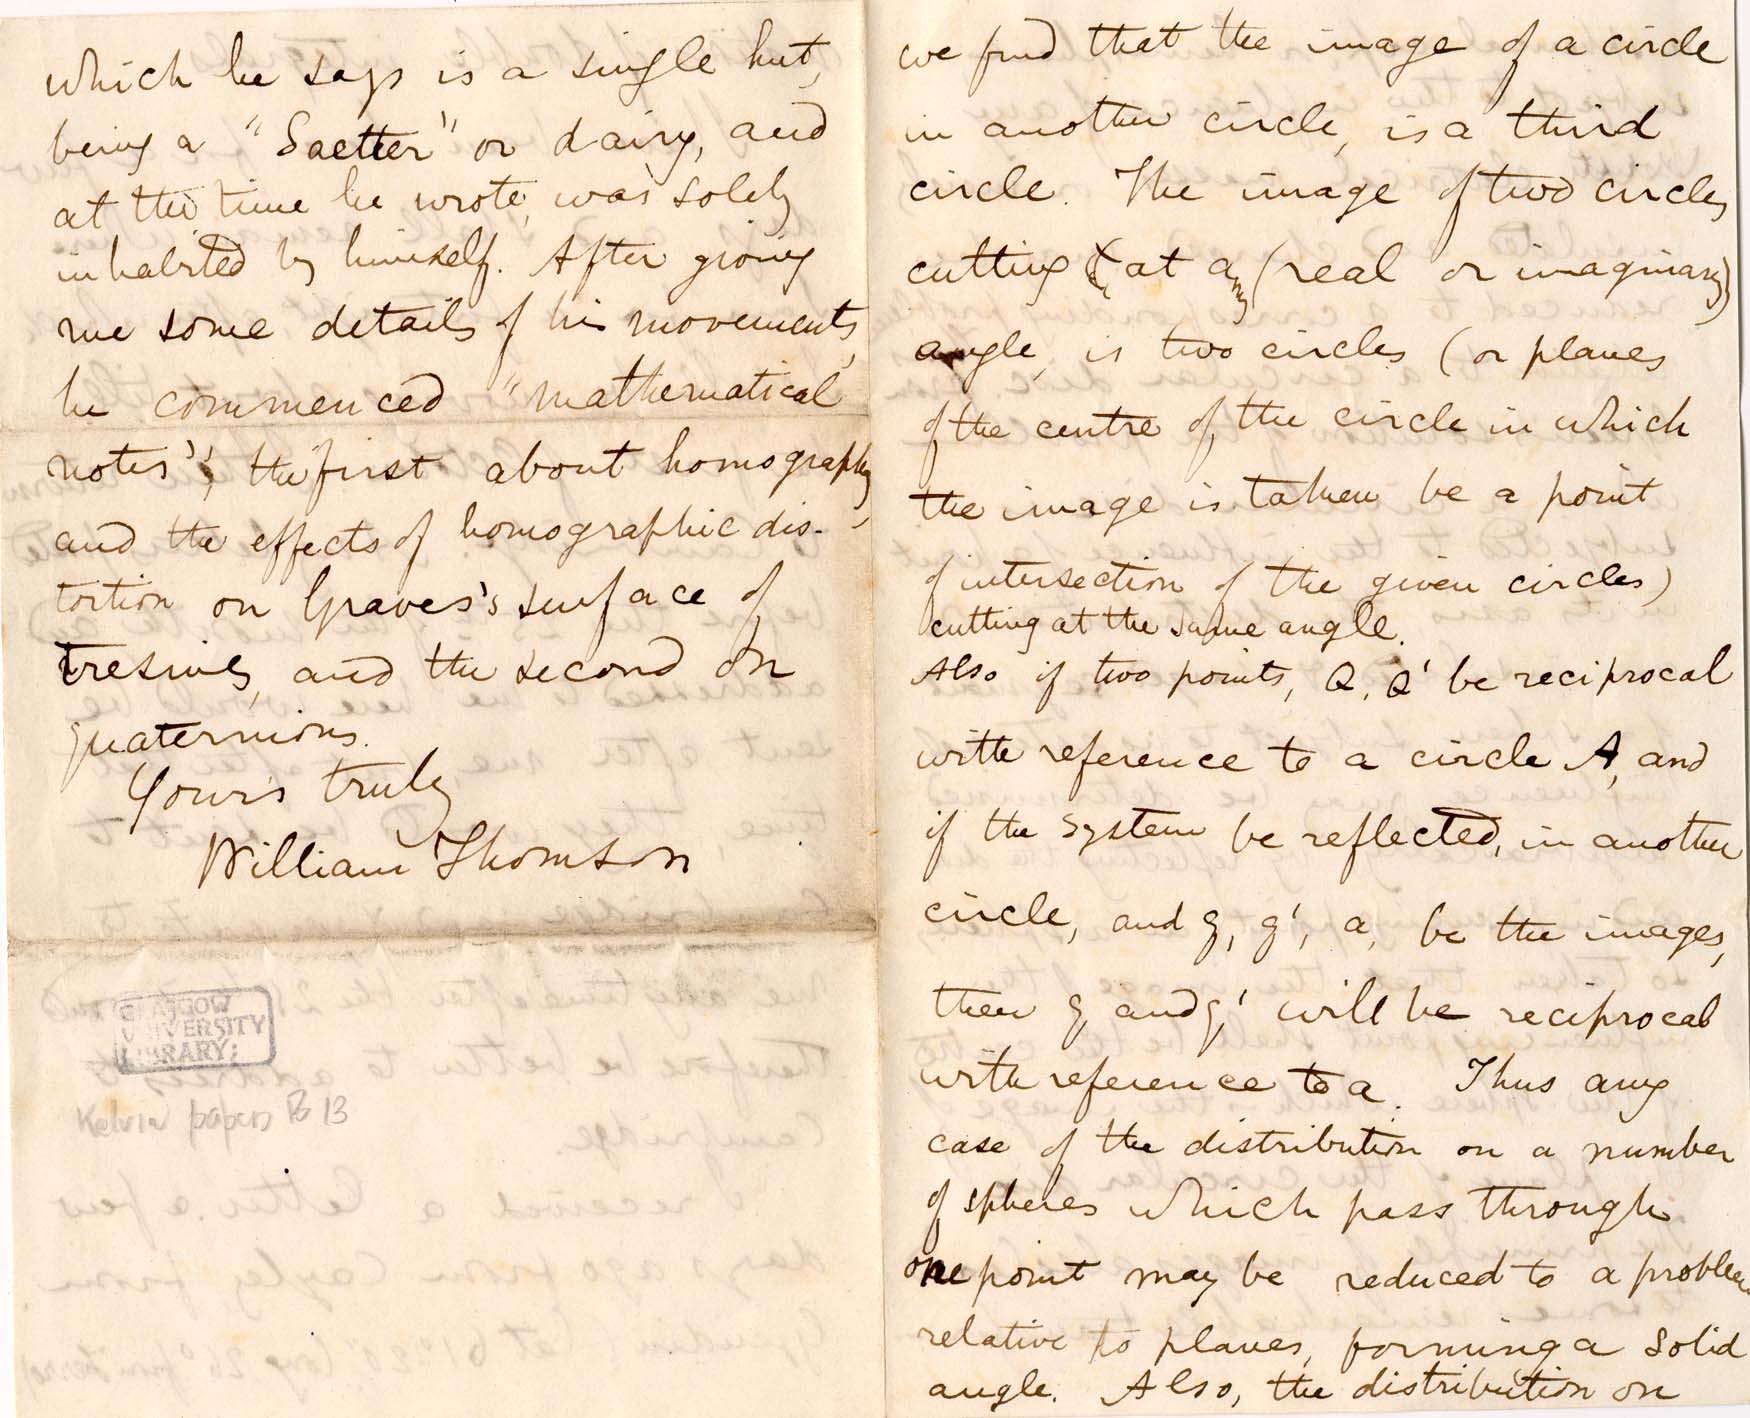 which he says is a single hut,
being a "Saetter" or dairy, and
at the time he wrote, was solely
inhabited by himself. After giving
me some details of his movements,
he commenced "mathematical
notes", the first about homography,
and the effects of homographic dis-
tortion on Graves's surface of
and the second on
quaternions.
Yours truly
William Thomson
GLASGOW
UNIVERSITY
LIBRARY:
Kelvin papers B 13
we find that the image of a circle
in another circle, is a third
circle. The image of two circles
cutting at any (real or imaginary)
angle, is two circles (or planes
of the centre of the circle in which
the image is taken be a point
of intersection of the given circles)
cutting at the same angle.
Also if two points, Q, Q' be reciprocal
with reference to a circle A, and
if the system be reflected, in another
circle, and q, q', a, be the images,
then q and q' will be reciprocal
with reference to a. Thus any
case of the distribution on a number
of spheres which pass through
one point may be reduced to a problem
relative to planes, forming a solid
angle. Also, the distribution on